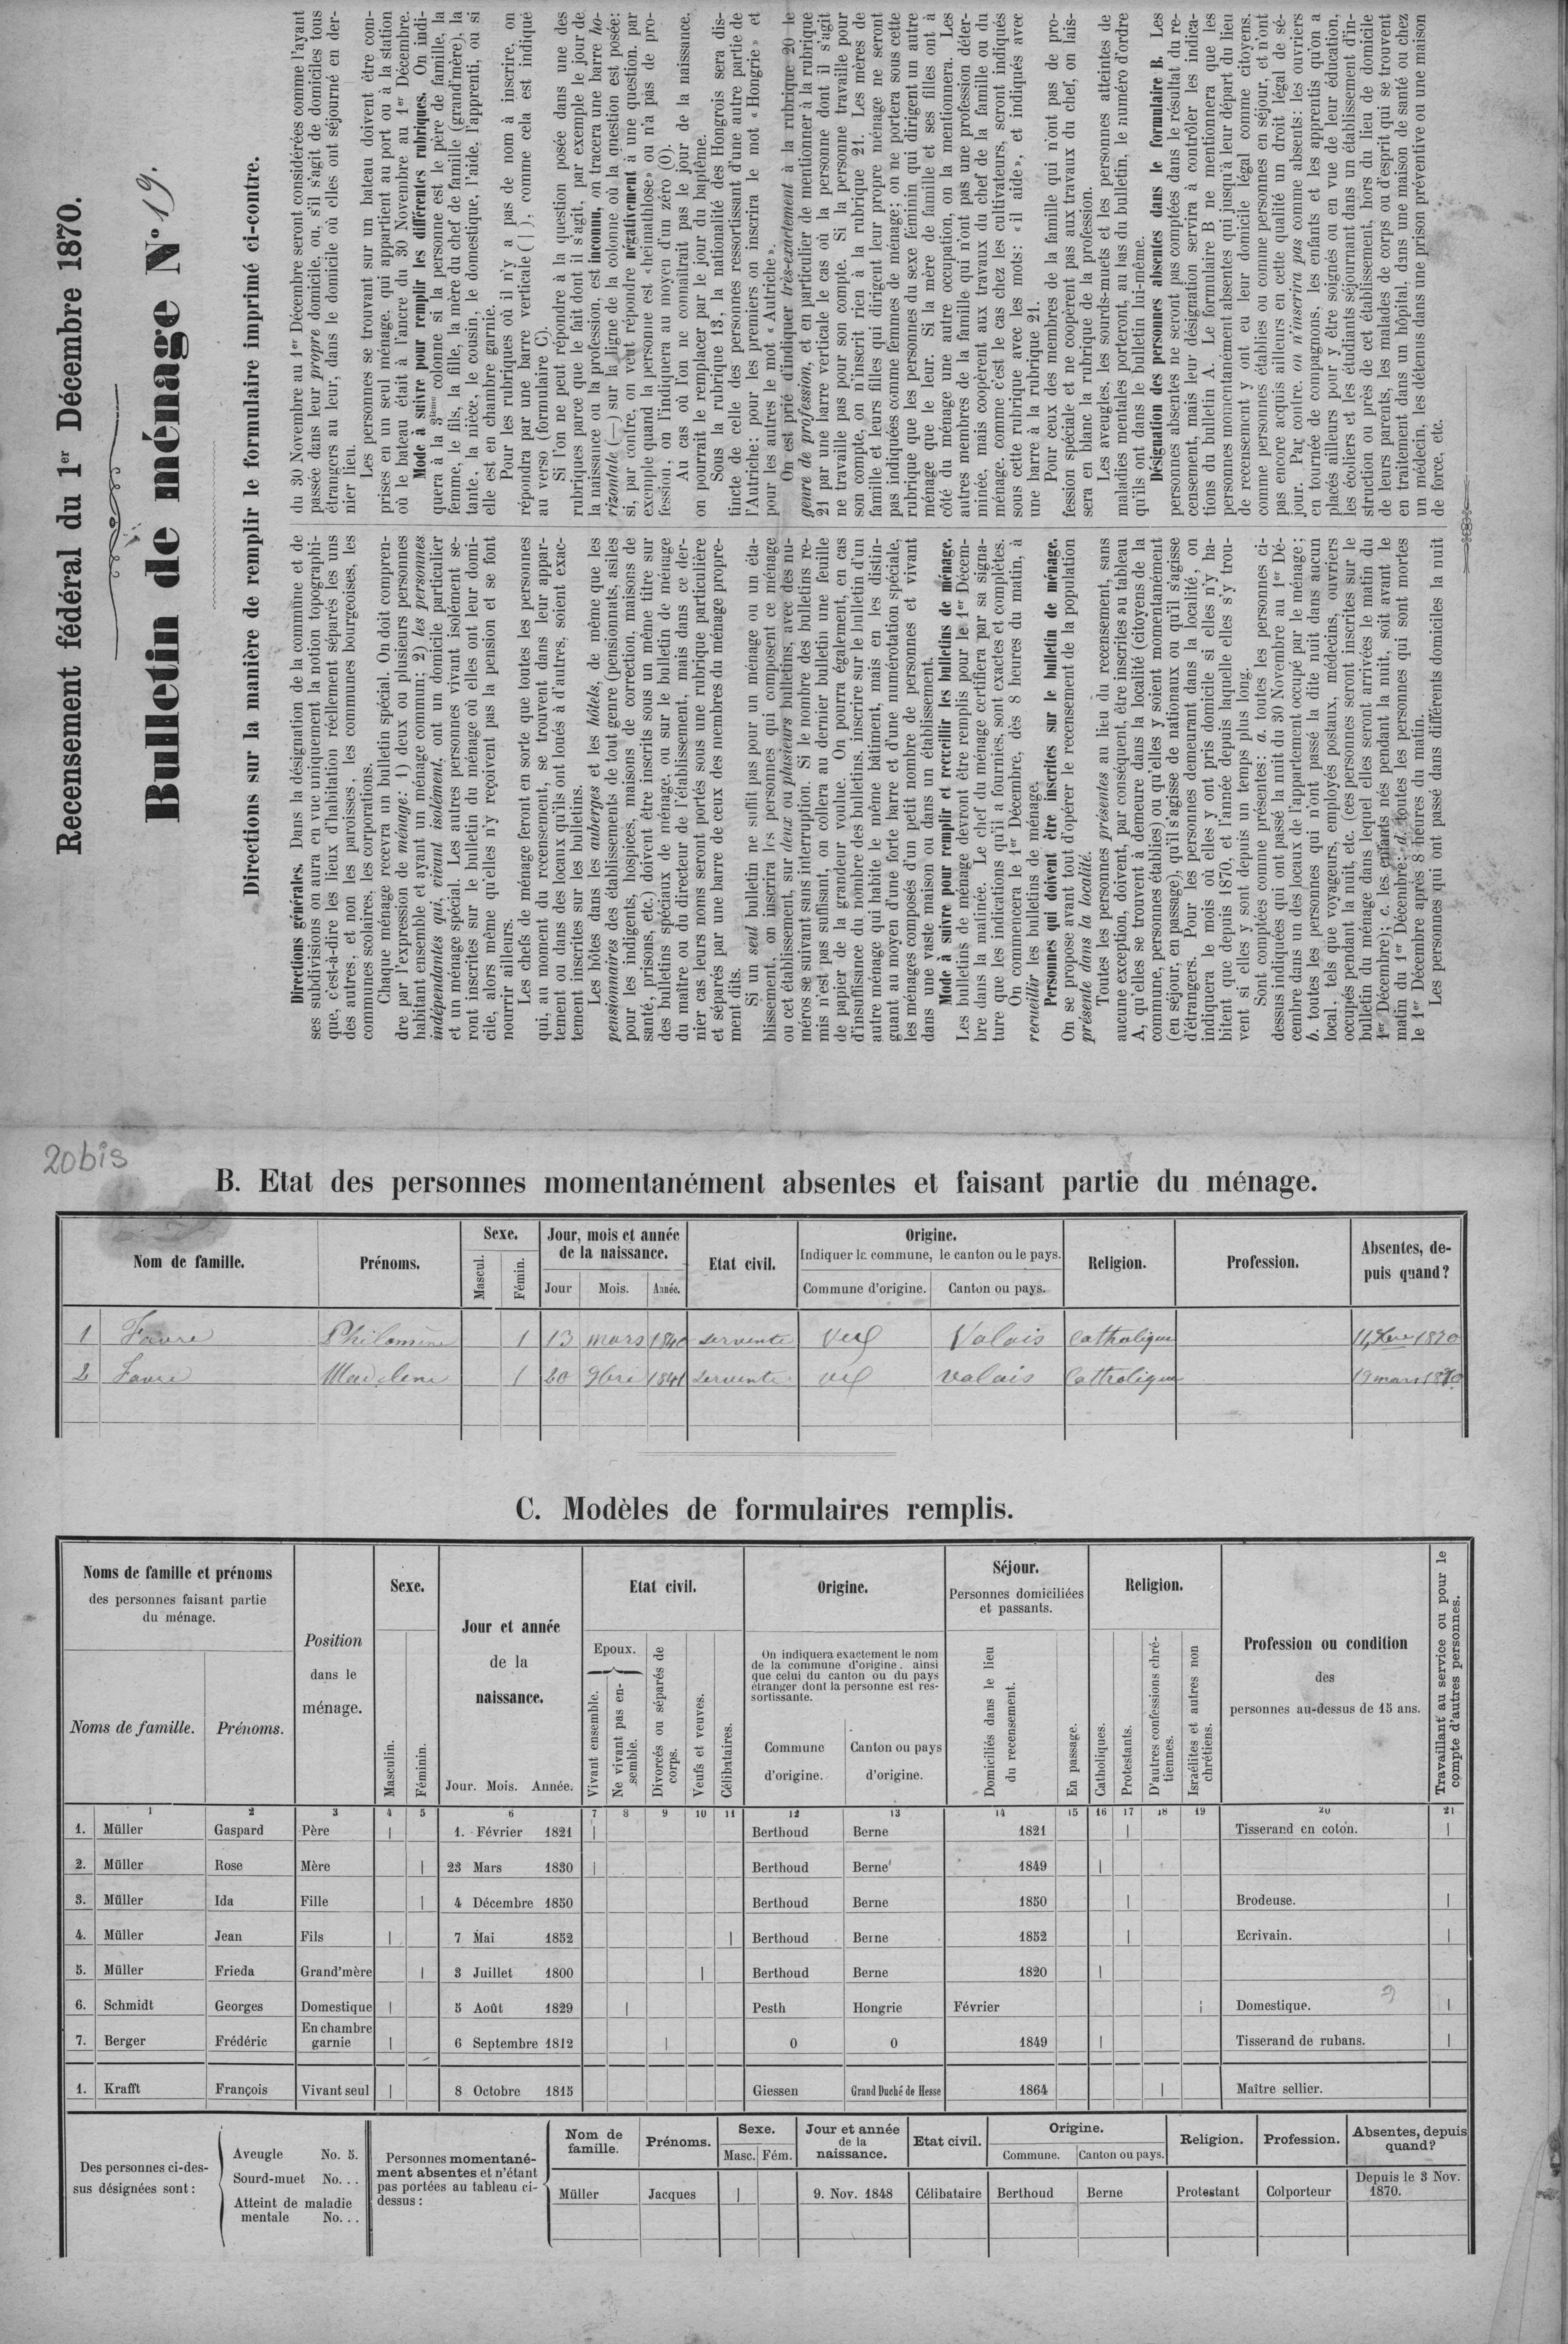 Recensement fédéral du 1er Décembre 1870.
Bulletin de ménage No 19.
Directions sur la manière de remplir le formulaire imprimé ci-contre.
Directions générales. Dans la désignation de la commune et de
ses subdivisions on aura en vue uniquement la notion topographi-
que, c'est-à-dire les lieux d'habitation réellement séparés les uns
des autres, et non les paroisses, les communes bourgeoises, les
communes scolaires, les corporations.
Chaque ménage recevra un bulletin spécial. On doit compren-
dre par l'expression de ménage: 1) deux ou plusieurs personnes
habitant ensemble et ayant un ménage commun; 2) les personnes
indépendantes qui, vivant isolément, ont un domicile particulier
et un ménage spécial. Les autres personnes vivant isolément se-
ront inscrites sur le bulletin du ménage où elles ont leur domi-
cile, alors même qu'elles n'y reçoivent pas la pension et se font
nourrir ailleurs.
Les chefs de ménage feront en sorte que toutes les personnes
qui, au moment du recensement, se trouvent dans leur appar-
tement ou dans des locaux qu'ils ont loués à d'autres, soient exac-
tement inscrites sur les bulletins.
Les hôtes dans les auberges et les hôtels, de même que les
pensionnaires des établissements de tout genre (pensionnats, asiles
pour les indigents, hospices, maisons de correction, maisons de
santé, prisons, etc.) doivent être inscrits sous un même titre sur
des bulletins spéciaux de ménage, ou sur le bulletin de ménage
du maître ou du directeur de l'établissement, mais dans ce der-
nier cas leurs noms seront portés sous une rubrique particulière
et séparés par une barre de ceux des membres du ménage propre-
ment dits.
Si un seul bulletin ne suffit pas pour un ménage ou un éta-
blissement, on inscrira les personnes qui composent ce ménage
ou cet établissement, sur deux ou plusieurs bulletins, avec des nu-
méros se suivant sans interruption. Si le nombre des bulletins re-
mis n'est pas suffisant, on collera au dernier bulletin une feuille
de papier de la grandeur voulue. On pourra également, en cas
d'insuffisance du nombre des bulletins, inscrire sur le bulletin d'un
autre ménage qui habite le même bâtiment, mais en les distin-
guant au moyen d'une forte barre et d'une numérotation spéciale,
les ménages composés d'un petit nombre de personnes et vivant
dans une vaste maison ou dans un établissement.
Mode à suivre pour remplir et recueillir les bulletins de ménage.
Les bulletins de ménage devront être remplis pour le 1er Décem-
bre dans la matinée. Le chef du ménage certifiera par sa signa-
ture que les indications qu'il a fournies, sont exactes et complètes.
On commencera le 1er Décembre, dès 8 heures du matin, à
recueillir les bulletins de ménage.
Personnes qui doivent être inscrites sur le bulletin de ménage.
On se propose avant tout d'opérer le recensement de la population
présente dans la localité.
Toutes les personnes présentes au lieu du recensement, sans
aucune exception, doivent, par conséquent, être inscrites au tableau
A, qu'elles se trouvent à demeure dans la localité (citoyens de la
commune, personnes établies) ou qu'elles y soient momentanément
(en séjour, en passage), qu'il s'agisse de nationaux ou qu'il s'agisse
d'étrangers. Pour les personnes demeurant dans la localité, on
indiquera le mois où elles y ont pris domicile si elles n'y ha-
bitent que depuis 1870, et l'année depuis laquelle elles s'y trou-
vent si elles y sont depuis un temps plus long.
Sont comptées comme présentes: a. toutes les personnes ci-
dessus indiquées qui ont passé la nuit du 30 Novembre au 1er Dé-
cembre dans un des locaux de l'appartement occupé par le ménage;
b. toutes les personnes qui n'ont passé la dite nuit dans aucun
local, tels que voyageurs, employés postaux, médecins, ouvriers
occupés pendant la nuit, etc. (ces personnes seront inscrites sur le
bulletin du ménage dans lequel elles seront arrivées le matin du
1er Décembre); c. les enfants nés pendant la nuit, soit avant le
matin du 1er Décembre; d. toutes les personnes qui sont mortes
le 1er Décembre après 8 heures du matin.
Les personnes qui ont passé dans différents domiciles la nuit
du 30 Novembre au 1er Décembre seront considérées comme l'ayant
passée dans leur propre domicile, ou, s'il s'agit de domiciles tous
étrangers au leur, dans le domicile où elles ont séjourné en der-
nier lieu.
Les personnes se trouvant sur un bateau doivent être com-
prises en un seul ménage, qui appartient au port ou à la station
où le bateau était à l'ancre du 30 Novembre au 1er Décembre.
Mode à suivre pour remplir les différentes rubriques. On indi-
quera à la 3ème colonne si la personne est le père de famille, la
femme, le fils, la fille, la mère du chef de famille (grand'mère), la
tante, la nièce, le cousin, le domestique, l'aide, l'apprenti, ou si
elle est en chambre garnie.
Pour les rubriques où il n'y a pas de nom à inscrire, on
répondra par une barre verticale (|), comme cela est indiqué
au verso (formulaire C).
Si l'on ne peut répondre à la question posée dans une des
rubriques parce que le fait dont il s'agit, par exemple le jour de
la naissance ou la profession, est inconnu, on tracera une barre ho-
rizontale (—) sur la ligne de la colonne où la question est posée;
si, par contre, on veut répondre négativement à une question, par
exemple quand la personne est «heimathlose» ou n'a pas de pro-
fession, on l'indiquera au moyen d'un zéro (0).
Au cas où l'on ne connaîtrait pas le jour de la naissance,
on pourrait le remplacer par le jour du baptême.
Sous la rubrique 13, la nationalité des Hongrois sera dis-
tincte de celle des personnes ressortissant d'une autre partie de
l'Autriche; pour les premiers on inscrira le mot «Hongrie» et
pour les autres le mot «Autriche».
On est prié d'indiquer très-exactement à la rubrique 20 le
genre de profession, et en particulier de mentionner à la rubrique
21 par une barre verticale le cas où la personne dont il s'agit
ne travaille pas pour son compte. Si la personne travaille pour
son compte, on n'inscrit rien à la rubrique 21. Les mères de
famille et leurs filles qui dirigent leur propre ménage ne seront
pas indiquées comme femmes de ménage; on ne portera sous cette
rubrique que les personnes du sexe féminin qui dirigent un autre
ménage que le leur. Si la mère de famille et ses filles ont à
côté du ménage une autre occupation, on la mentionnera. Les
autres membres de la famille qui n'ont pas une profession déter-
minée, mais coopèrent aux travaux du chef de la famille ou du
ménage, comme c'est le cas chez les cultivateurs, seront indiqués
sous cette rubrique avec les mots: «il aide», et indiqués avec
une barre à la rubrique 21.
Pour ceux des membres de la famille qui n'ont pas de pro-
fession spéciale et ne coopèrent pas aux travaux du chef, on lais-
sera en blanc la rubrique de la profession.
Les aveugles, les sourds-muets et les personnes atteintes de
maladies mentales porteront, au bas du bulletin, le numéro d'ordre
qu'ils ont dans le bulletin lui-même.
Désignation des personnes absentes dans le formulaire B. Les
personnes absentes ne seront pas comptées dans le résultat du re-
censement, mais leur désignation servira à contrôler les indica-
tions du bulletin A. Le formulaire B ne mentionnera que les
personnes momentanément absentes qui jusqu'à leur départ du lieu
de recensement y ont eu leur domicile légal comme citoyens,
comme personnes établies ou comme personnes en séjour, et n'ont
pas encore acquis ailleurs en cette qualité un droit légal de sé-
jour. Par contre, on n'inscrira pas comme absents: les ouvriers
en tournée de compagnons, les enfants et les apprentis qu'on a
placés ailleurs pour y être soignés ou en vue de leur éducation,
les écoliers et les étudiants séjournant dans un établissement d'in-
struction ou près de cet établissement, hors du lieu de domicile
de leurs parents, les malades de corps ou d'esprit qui se trouvent
en traitement dans un hôpital, dans une maison de santé ou chez
un médecin, les détenus dans une prison préventive ou une maison
de force, etc.
20bis
B. Etat des personnes momentanément absentes et faisant partie du ménage.
Nom de famille. Prénoms. Sexe. Mascul. Fémin. Jour, mois et année de la naissance. Jour Mois. Année. Etat civil. Origine. Indiquer la commune, le canton ou le pays. Commune d'origine. Canton ou pays. Religion. Profession. Absentes, de-puis quand?
1 Favre Philomène 1 13 mars 1840 servente Vex Valais Catholique 11 Xbre 1870
2 Favre Madelene 1 20 9bre 1841 servente vex valais Catholique 19 mars 1870
C. Modèles de formulaires remplis.
Noms de famille et prénoms
des personnes faisant partie
du ménage.
Noms de famille. Prénoms.
Position
dans le
ménage.
Sexe.
Masculin. Féminin.
Jour et année
de la
naissance.
Jour. Mois. Année.
Etat civil.
Epoux.
Vivant ensemble. Ne vivant pas en-semble. Divorcés ou séparés de corps. Veufs et veuves. Célibataires.
Origine.
On indiquera exactement le nom
de la commune d'origine, ainsi
que celui du canton ou du pays
étranger dont la personne est res-
sortissante.
Commune d'origine. Canton ou pays d'origine.
Séjour.
Personnes domiciliées
et passants.
Domiciliés dans le lieu du recensement. En passage.
Religion.
Catholiques. Protestants. D'autres confessions chré-tiennes. Israélites et autres non chrétiens.
Profession ou condition
des
personnes au-dessus de 15 ans.
Travaillant au service ou pour le compte d'autres personnes.
1 2 3 4 5 6 7 8 9 10 11 12 13 14 15 16 17 18 19 20 21
1. Müller Gaspard Père | 1. Février 1821 | Berthoud Berne 1821 | Tisserand en coton. |
2. Müller Rose Mère | 23 Mars 1830 | Berthoud Berne 1849 |
3. Müller Ida Fille | 4 Décembre 1850 Berthoud Berne 1850 | Brodeuse. |
4. Müller Jean Fils | 7 Mai 1852 | Berthoud Berne 1852 | Ecrivain. |
5. Müller Frieda Grand'mère | 3 Juillet 1800 | Berthoud Berne 1820 |
6. Schmidt Georges Domestique | 5 Août 1829 | Pesth Hongrie Février | Domestique. |
7. Berger Frédéric En chambre garnie | 6 Septembre 1812 | 0 0 1849 | Tisserand de rubans. |
1. Krafft François Vivant seul | 8 Octobre 1815 Giessen Grand Duché de Hesse 1864 | Maître sellier.
Des personnes ci-des-
sus désignées sont:
Aveugle No. 5.
Sourd-muet No. . .
Atteint de maladie
mentale No. . .
Personnes momentané-
ment absentes et n'étant
pas portées au tableau ci-
dessus:
Nom de famille. Prénoms. Sexe. Masc. Fém. Jour et année de la naissance. Etat civil. Origine. Commune. Canton ou pays. Religion. Profession. Absentes, depuis quand?
Müller Jacques | 9. Nov. 1848 Célibataire Berthoud Berne Protestant Colporteur Depuis le 3 Nov. 1870.